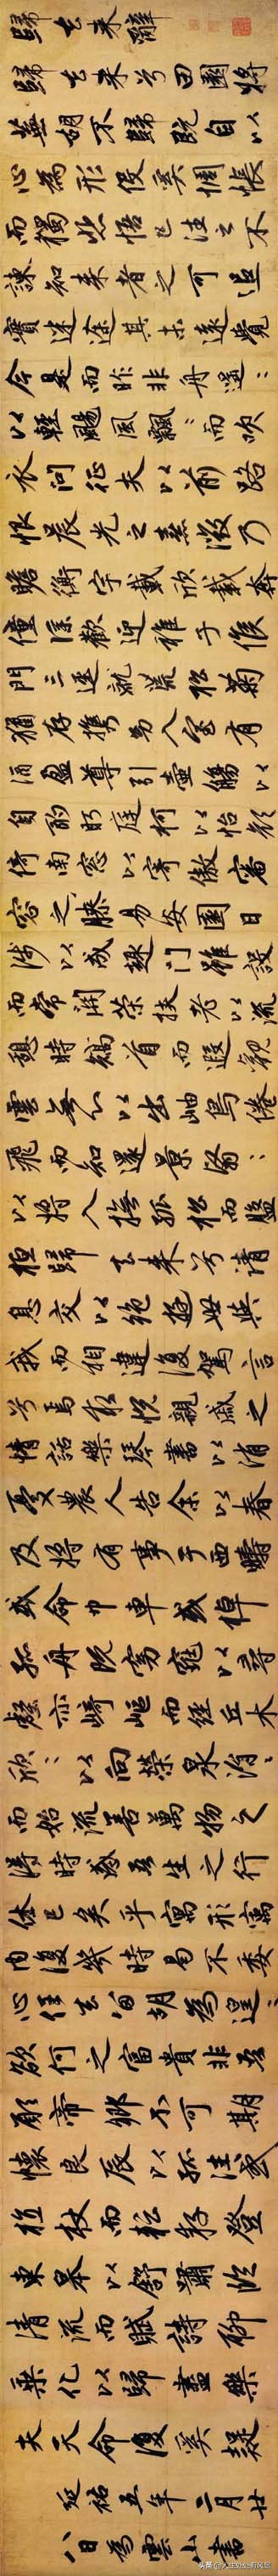 歸去来辭
歸去来兮田園將
蕪胡不歸既自以
心為形役奚惆悵
而獨悲悟已往之不
諫知来者之可追
實迷途其未遠覺
今是而昨非舟遥〻
以輕颺風飄〻而吹
衣問征夫以前路
恨晨光之熹微乃
瞻衡宇載欣載奔
僮僕歡迎稚子候
門三逕就荒松菊
猶存携幼入室有
酒盈尊引壺觴以
自酌眄庭柯以怡顔
倚南窓以寄傲審
容之膝易安園日
涉以成趣门雖設
而常関策扶老以流
憩時矯首而遐觀
雲無心以出岫鳥倦
飛而知還景翳〻
以將入撫孤松而盤
桓歸去来兮請
息交以絶遊世與
我而相違復駕言
兮焉求悦親戚之
情話樂琴書以消
憂農人告余以春
及將有事于西疇
或命巾車或棹
孤舟既窈窕以尋
壑亦崎嶇而經丘木
欣〻以向榮泉涓〻
而始流善萬物之
得時感吾生之行
休已矣乎寓形寓
内復幾時曷不委
心任去留胡為遑〻
欲何之富貴非吾
願帝鄉不可期
懷良辰以孤往或
植杖而耘耔登
東皐以舒嘯臨
清流而賦詩聊
乗化以歸盡樂
夫天命復奚疑
延祐五年二月廿
八日為雲山書